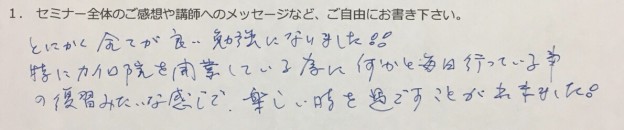 1. セミナー全体のご感想や講師へのメッセージなど、ご自由にお書き下さい。
とにかく全てが良い勉強になりました!!
特にカイロ院を開業している為に何かと毎日行っている事
の復習みたいな感じで、楽しい時を過ごすことが出来ました!